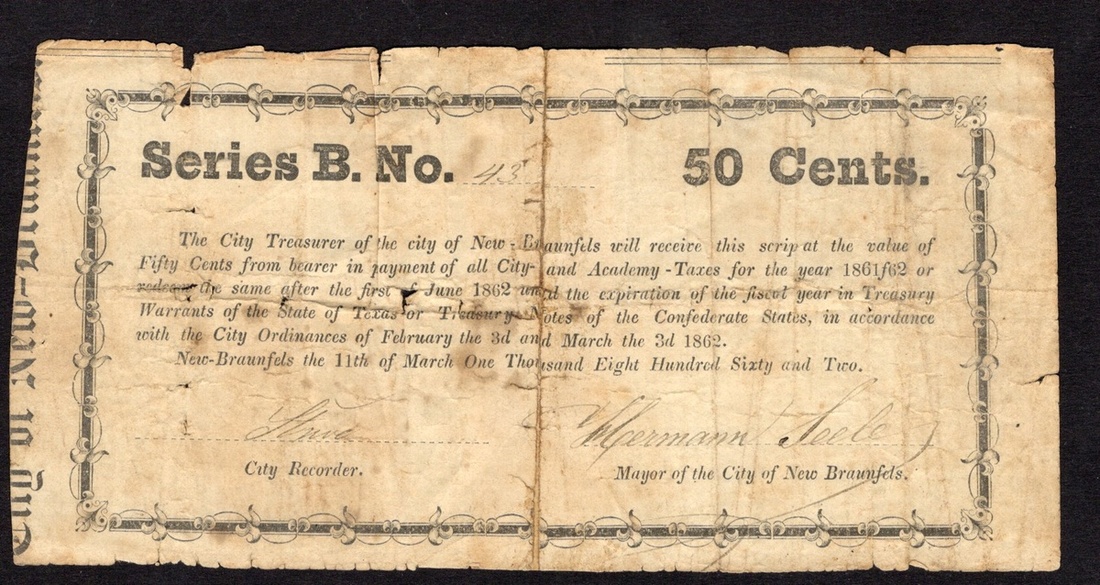 City of New-Braunfels
Series B. No. 43
50 Cents.
The City Treasurer of the city of New-Braunfels will receive this scrip at the value of
Fifty Cents from bearer in payment of all City- and Academy-Taxes for the year 1861f62 or
redeem the same after the first of June 1862 until the expiration of the fiscal year in Treasury
Warrants of the State of Texas or Treasury-Notes of the Confederate States, in accordance
with the City Ordinances of February the 3d and March the 3d 1862.
New-Braunfels the 11th of March One Thousand Eight Hundred Sixty and Two.
Hermann Seele
City Recorder.
Mayor of the City of New Braunfels.